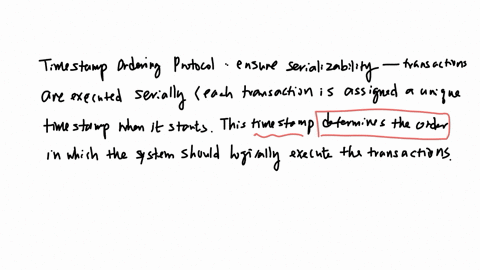 Timestamp Ordering Protocol · ensure serializability — transactions
are executed serially (each transaction is assigned a unique
timestamp when it starts. This timestamp determines the order
in which the system should logically execute the transactions.